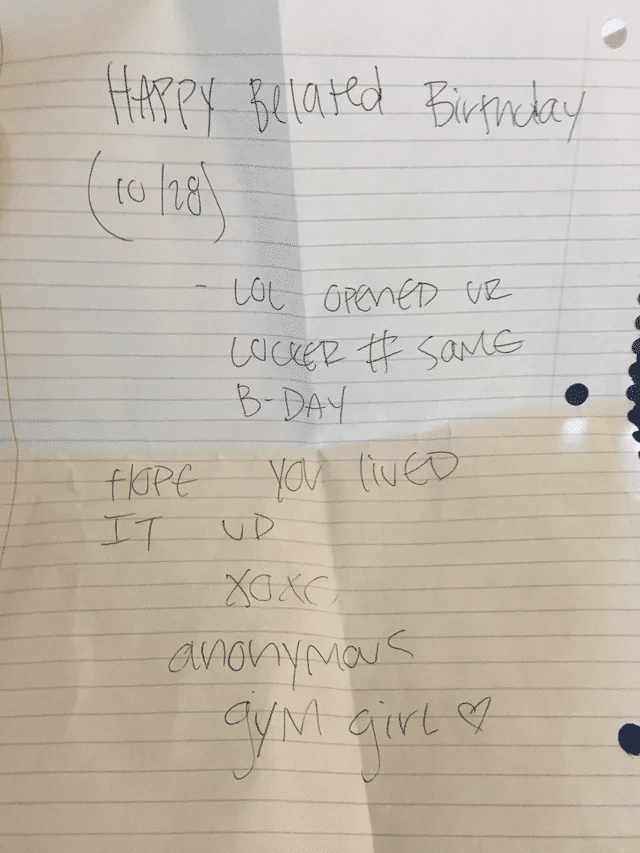 HAPPY Belated Birthday
(10/28)
- LOL OPENED UR
LOCKER # SAME
B-DAY
HOPE YOU LIVED
IT UP
XOXO
anonymous
gym girl ♡